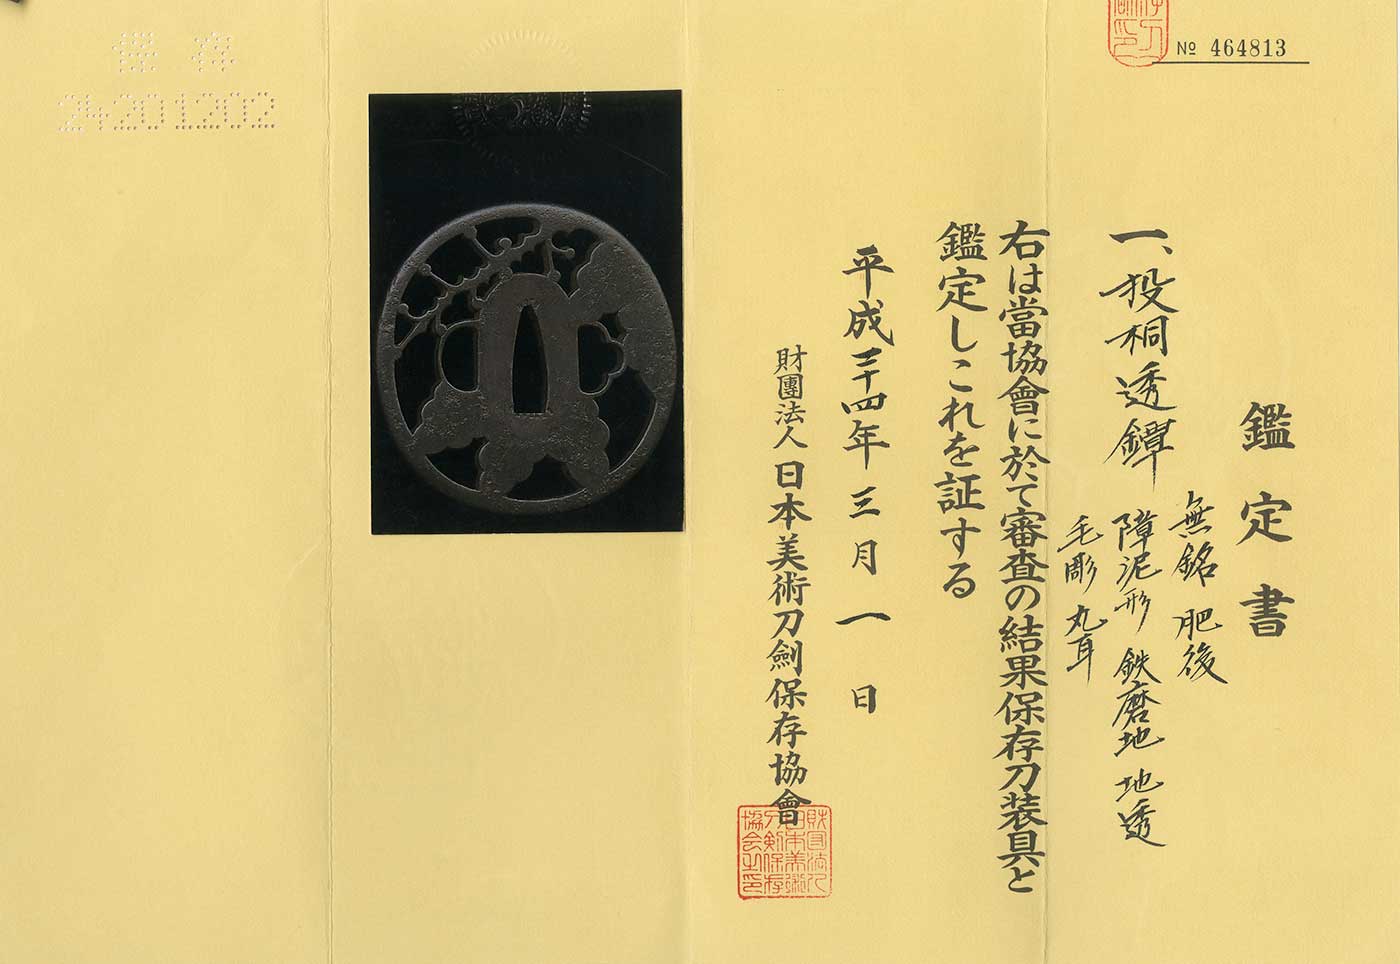 № 464813
鑑定書
一、投桐透鐔
無銘 肥後
障泥形 鉄磨地 地透
毛彫 丸耳
右は當協會に於て審査の結果保存刀装具と
鑑定しこれを証する
平成二十四年三月一日
財團法人日本美術刀劍保存協會
財団法人
日本美術
刀剣保存
協会之印
保存
24201202